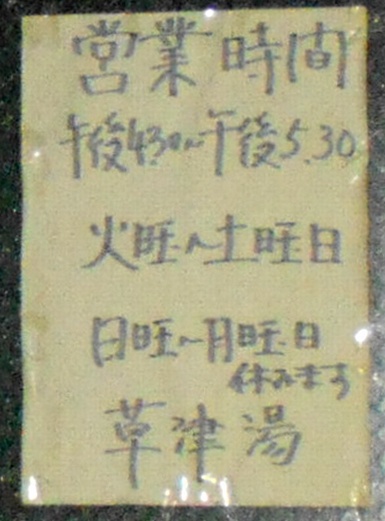 営業時間
午後4.30〜午後5.30
火旺〜土旺日
日旺〜月旺日
休みます
草津湯